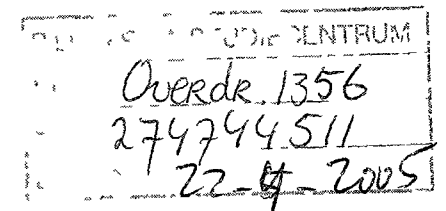 CENTRUM
Overdr. 1356
274744511
22-4-2005